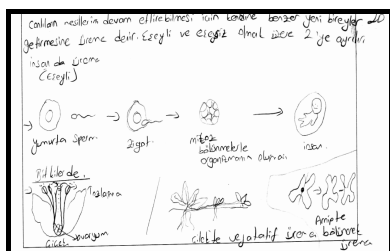 Canlıların nesillerin devam ettirebilmesi için kendine benzer yeni bireyler
getirmesine üreme denir. Eşeyli ve eşeysiz olmak üzere 2'ye ayrılır.
insan da üreme
(Eşeyli)
yumurta sperm
zigot
mitoz
bölünmelerle
organizmanın oluşması
insan
Bitkilerde
Tozlaşma
Çiçek
ovaryum
çilekte vejatatif üreme
Amipte
bölünerek
üreme